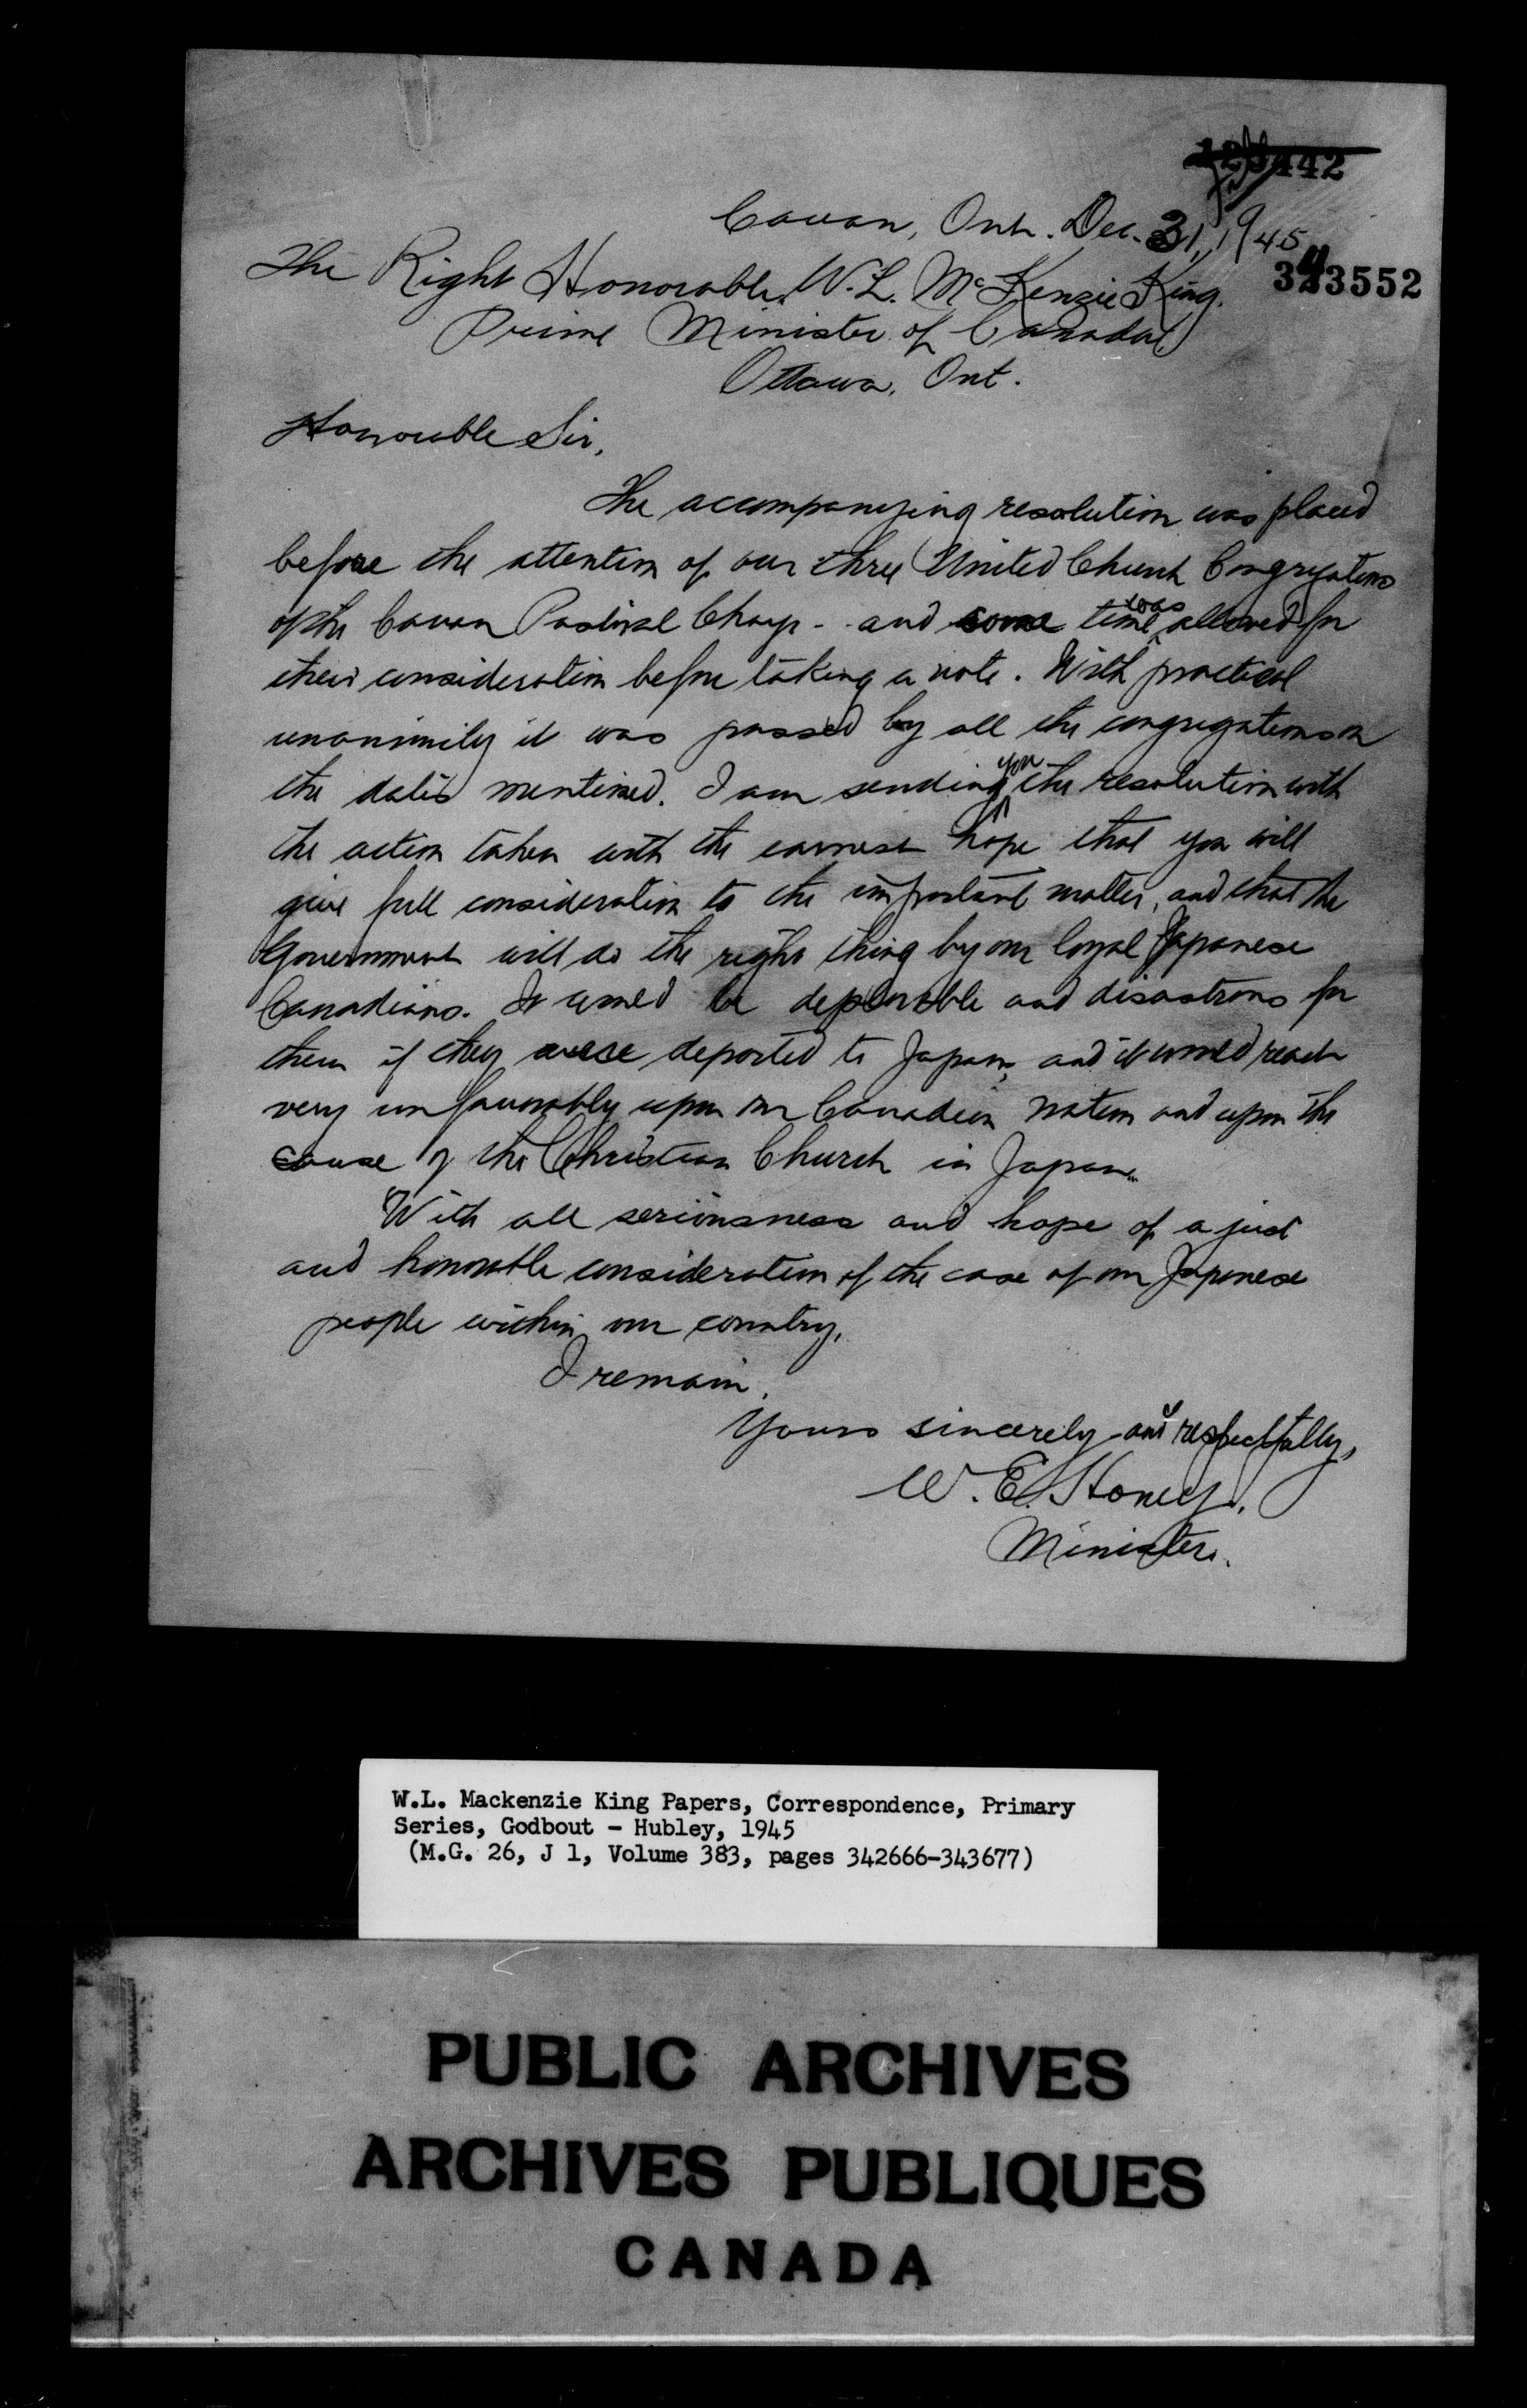 Cavan, Ont. Dec. 31, 1945
343552
The Right Honorable W. L. McKenzie King.
Prime Minister of Canada
Ottawa, Ont.
Honorable Sir,
The accompanying resolution was placed
before the attention of our three United Church Congregations
of the Cavan Pastoral Charge - and some time was allowed for
their consideration before taking a vote. With practical
unanimity it was passed by all the congregations on
the dates mentioned. I am sending you the resolution with
the action taken with the earnest hope that you will
give full consideration to the important matter, and that the
Government will do the right thing by our loyal Japanese
Canadians. It would be deplorable and disastrous for
them if they were deported to Japan, and it would react
very unfavorably upon our Canadian nation and upon the
cause of the Christian Church in Japan.
With all seriousness and hope of a just
and honorable consideration of the case of our Japanese
people within our country,
I remain,
Yours sincerely and respectfully,
W. E. Honey,
Minister.
W.L. Mackenzie King Papers, Correspondence, Primary
Series, Godbout - Hubley, 1945
(M.G. 26, J 1, Volume 383, pages 342666-343677)
PUBLIC ARCHIVES
ARCHIVES PUBLIQUES
CANADA